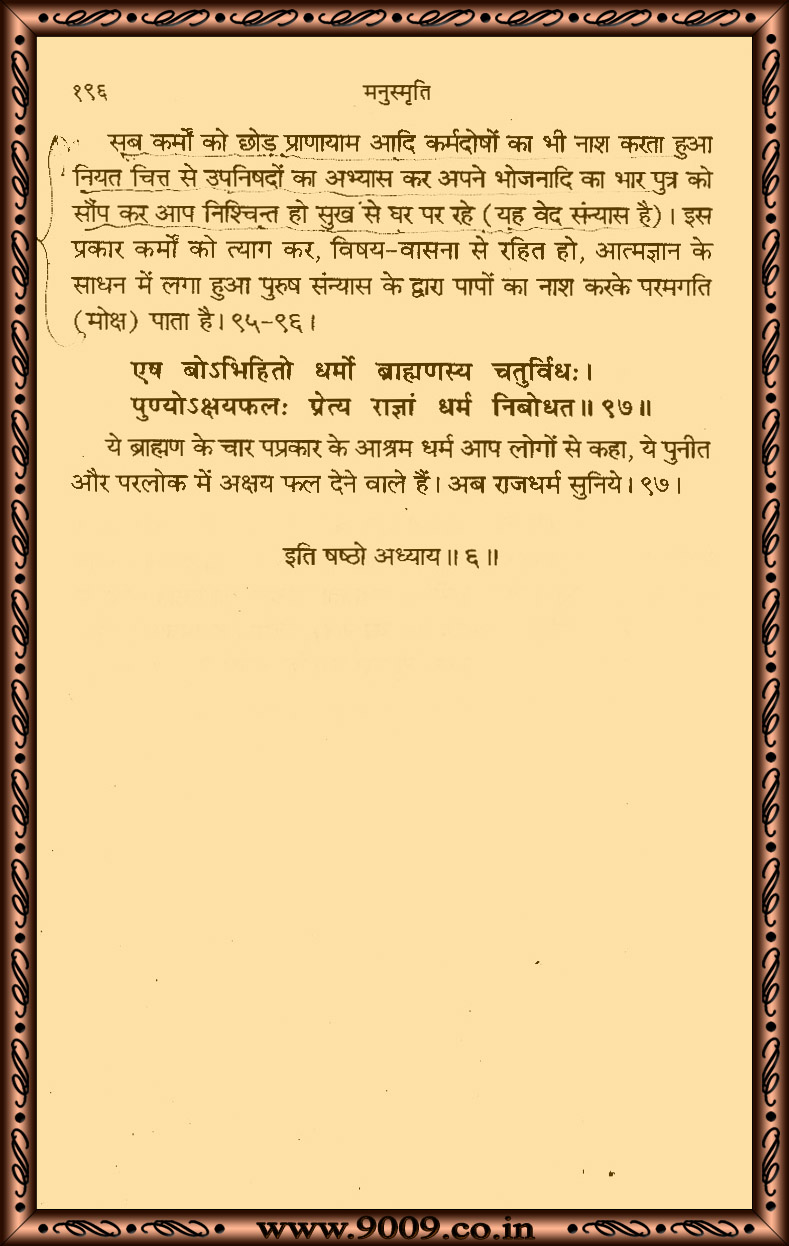 १९६ मनुस्मृति
सब कर्मों को छोड़ प्राणायाम आदि कर्मदोषों का भी नाश करता हुआ
नियत चित्त से उपनिषदों का अभ्यास कर अपने भोजनादि का भार पुत्र को
सौंप कर आप निश्चिन्त हो सुख से घर पर रहे (यह वेद संन्यास है)। इस
प्रकार कर्मों को त्याग कर, विषय-वासना से रहित हो, आत्मज्ञान के
साधन में लगा हुआ पुरुष संन्यास के द्वारा पापों का नाश करके परमगति
(मोक्ष) पाता है। ९५-९६।
एष बोऽभिहितो धर्मो ब्राह्मणस्य चतुर्विधः।
पुण्योऽक्षयफलः प्रेत्य राज्ञां धर्म निबोधत॥ ९७॥
ये ब्राह्मण के चार पप्रकार के आश्रम धर्म आप लोगों से कहा, ये पुनीत
और परलोक में अक्षय फल देने वाले हैं। अब राजधर्म सुनिये। ९७।
इति षष्ठो अध्याय॥ ६॥
www.9009.co.in